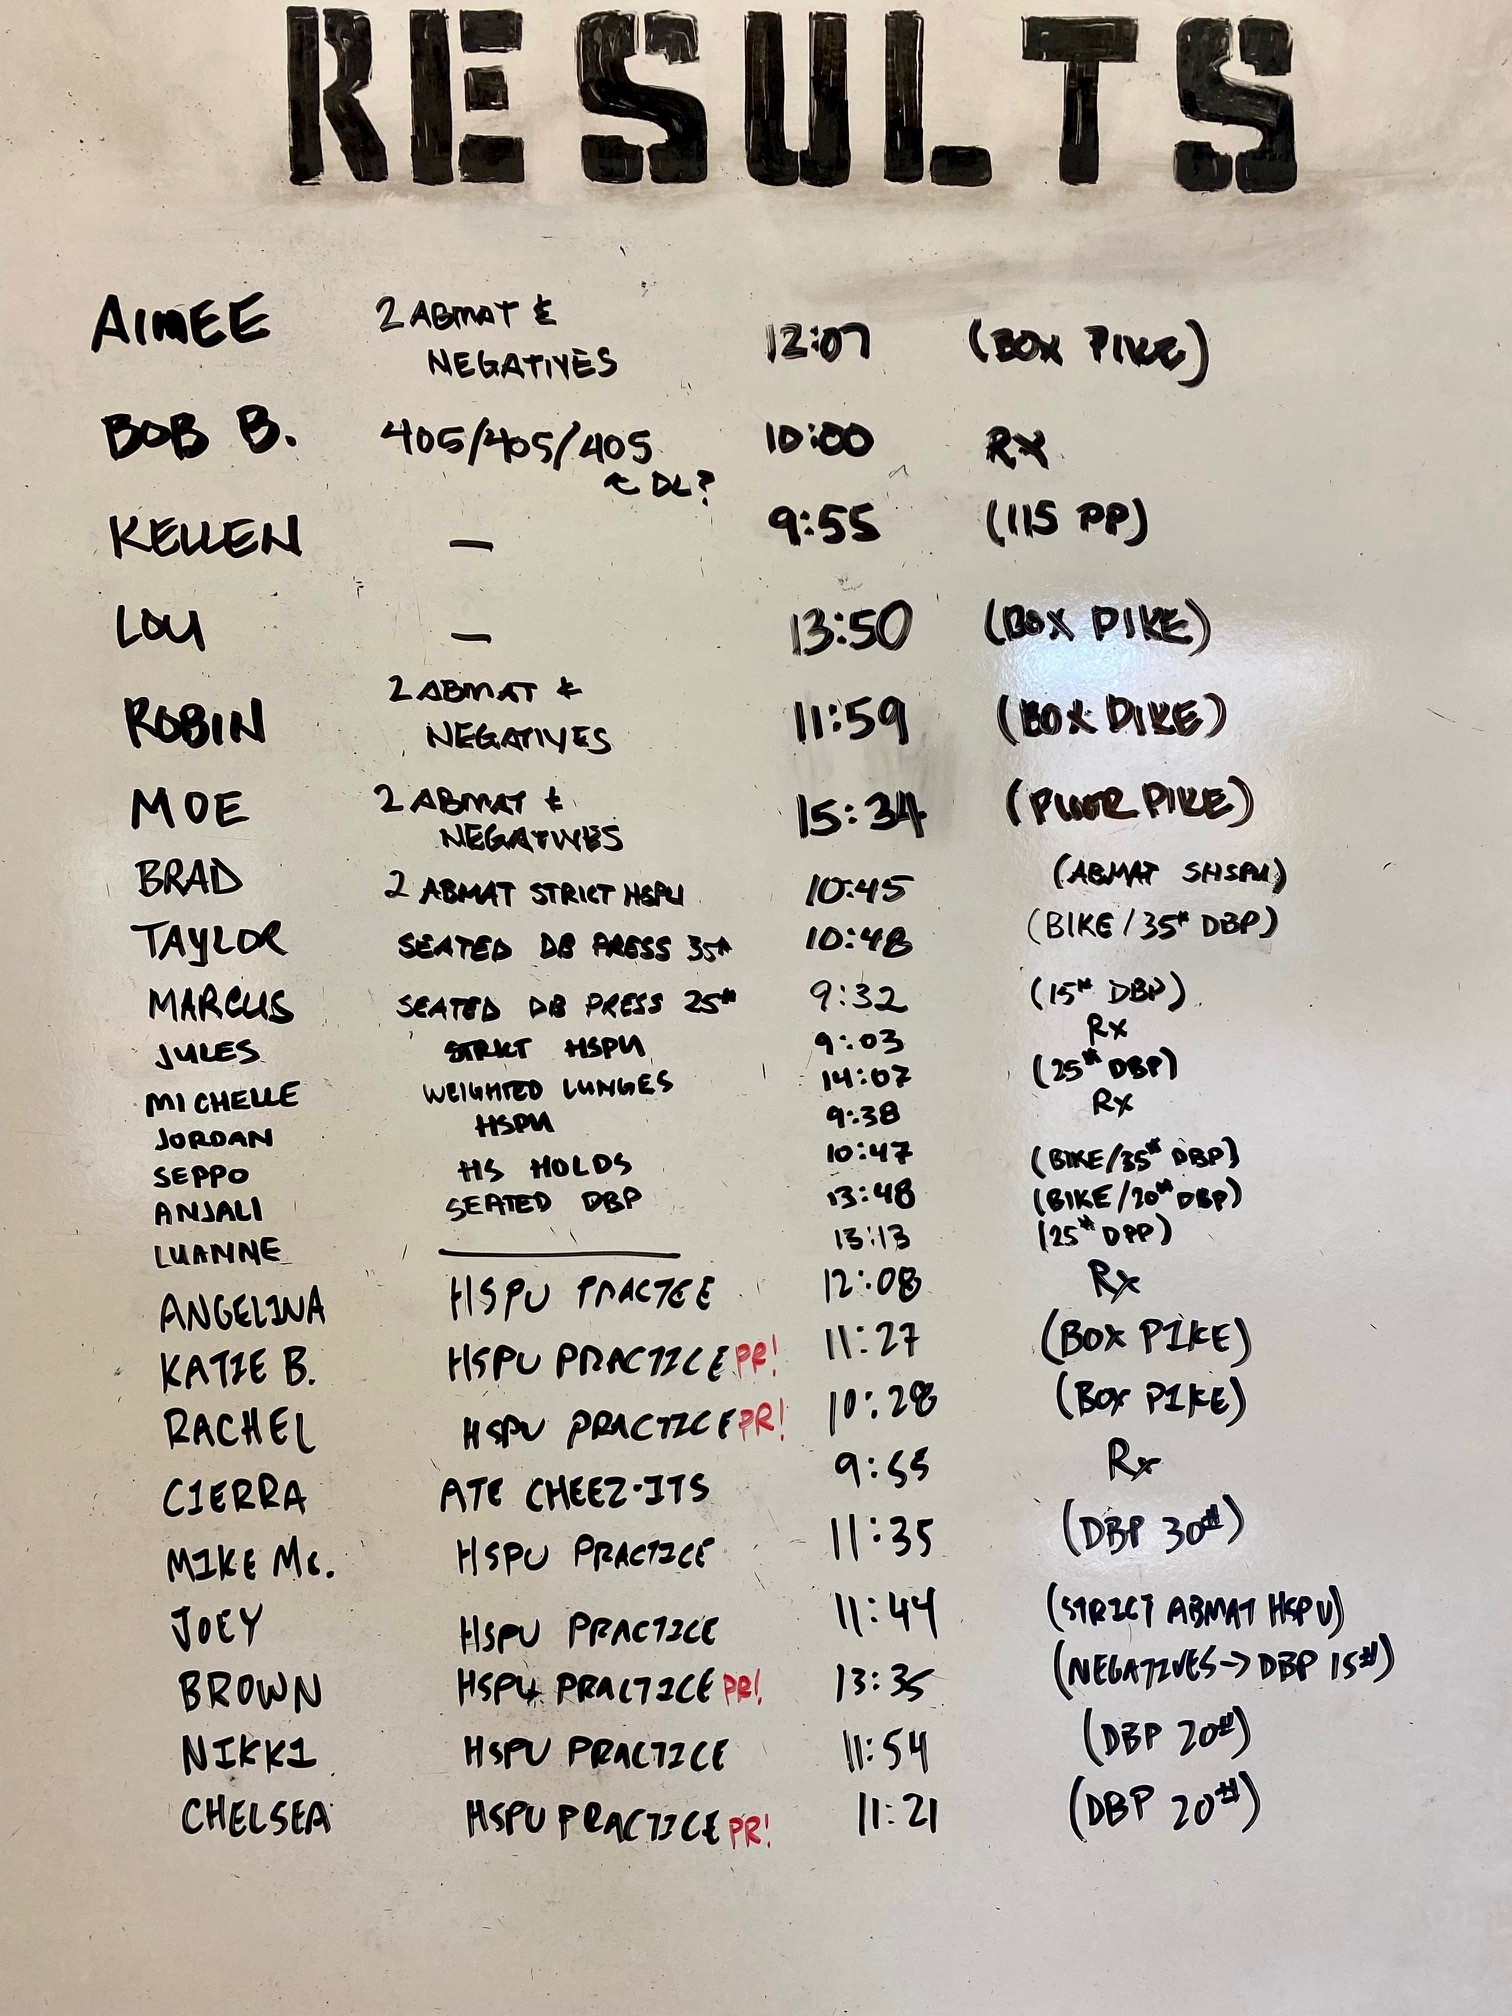 RESULTS
AIMEE 2 ABMAT & NEGATIVES 12:07 (BOX PIKE)
BOB B. 405/405/405 ← DL? 10:00 RX
KELLEN — 9:55 (115 PP)
LOU — 13:50 (BOX PIKE)
ROBIN 2 ABMAT & NEGATIVES 11:59 (BOX PIKE)
MOE 2 ABMAT & NEGATIVES 15:34 (FLOOR PIKE)
BRAD 2 ABMAT STRICT HSPU 10:45 (ABMAT SHSPU)
TAYLOR SEATED DB PRESS 35# 10:48 (BIKE/35# DBP)
MARCUS SEATED DB PRESS 25# 9:32 (15# DBP)
JULES STRICT HSPU 9:03 Rx
MICHELLE WEIGHTED LUNGES 14:07 (25# DBP)
JORDAN HSPU 9:38 Rx
SEPPO HS HOLDS 10:47 (BIKE/35# DBP)
ANJALI SEATED DBP 13:48 (BIKE/20# DBP)
LUANNE — 13:13 (25# DBP)
ANGELINA HSPU PRACTCE 12:08 Rx
KATIE B. HSPU PRACTICE PR! 11:27 (BOX PIKE)
RACHEL HSPU PRACTICE PR! 10:28 (BOX PIKE)
CIERRA ATE CHEEZ-ITS 9:55 Rx
MIKE Mc. HSPU PRACTICE 11:35 (DBP 30#)
JOEY HSPU PRACTICE 11:44 (STRICT ABMAT HSPU)
BROWN HSPU PRACTICE PR! 13:35 (NEGATIVES→DBP 15#)
NIKKI HSPU PRACTICE 11:54 (DBP 20#)
CHELSEA HSPU PRACTICE PR! 11:21 (DBP 20#)